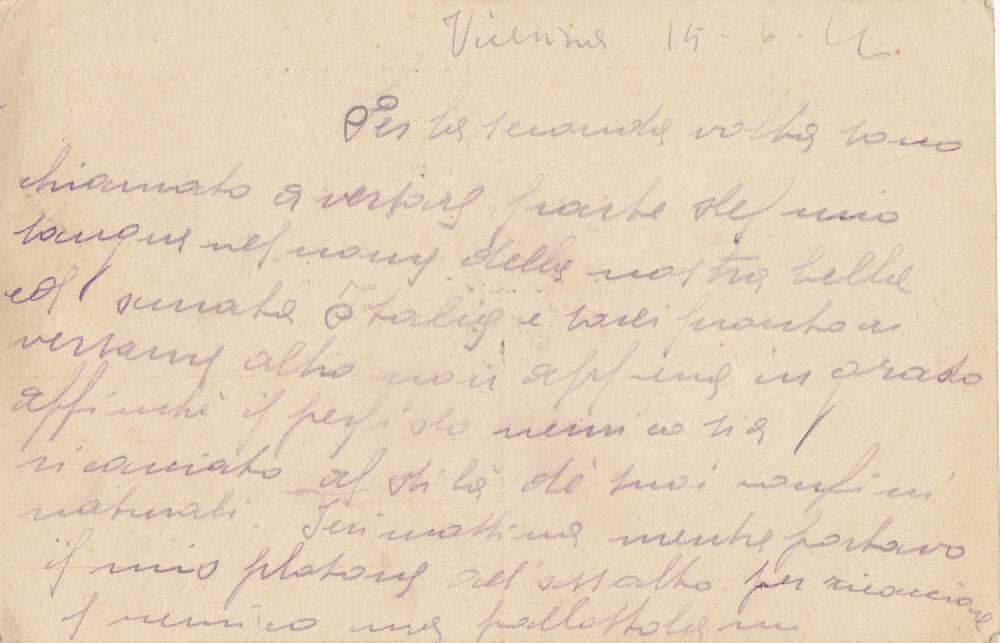 Vicenza 14-6-
Per la seconda volta sono
chiamato a versare parte del mio
sangue nel nome della nostra bella
ed amata Italia e sarei pronto a
versarne altro non appena in grado
affinchè il perfido nemico sia
ricacciato al di là dè suoi confini
naturali. Ieri mattina mentre portavo
il mio plotone all'assalto per ricacciare
il nemico una pallottola m